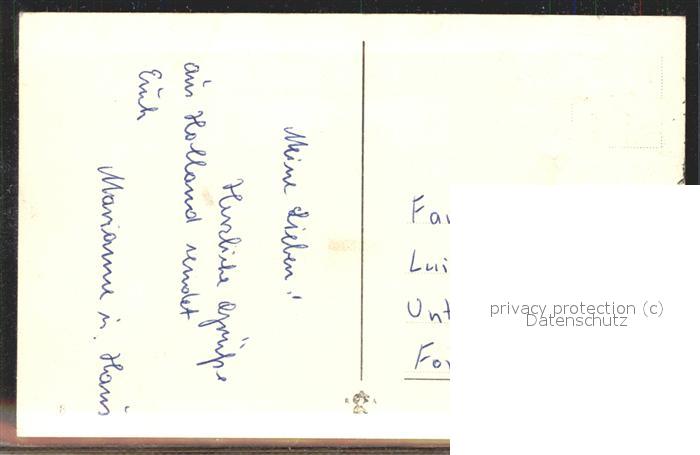 Meine Lieben!
Herzliche Grüße
aus Holland sendet
Euch
Marianne u. Hans
Fa
Lui
Unt
For
privacy protection (c)
Datenschutz